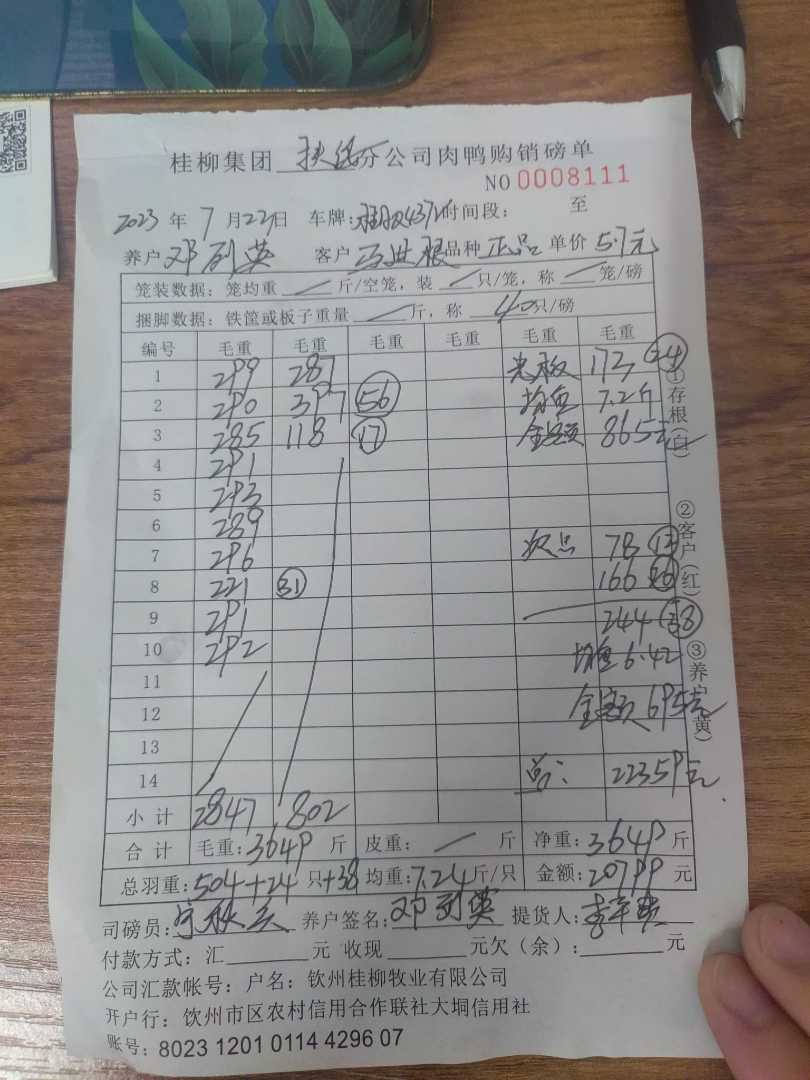 桂柳集团 分公司肉鸭购销磅单
NO 0008111
2023 年 7 月 22 日 车牌: 时间段: 至
养户 邓列英 客户 品种 正品 单价 5.7元
笼装数据: 笼均重 — 斤/空笼, 装 — 只/笼, 称 — 笼/磅
捆脚数据: 铁筐或板子重量 — 斤, 称 40 只/磅
编号 毛重 毛重 毛重 毛重 毛重 毛重
1 299 287 光板 173 24
2 290 397 56 均重 7.2斤
3 285 118 17 金额 865元
4 291
5 293
6 289
7 296 次品 78 12
8 221 31 166 26
9 291 244 38
10 292 均重 6.42
11
12 金额 695元
13
14 总: 22359元
小计 2847 802
合计 毛重: 3649 斤 皮重: — 斤 净重: 3649 斤
总羽重: 504+24 只+38 均重: 7.24 斤/只 金额: 20799 元
司磅员: 养户签名: 邓列英 提货人:
付款方式: 汇 元 收现 元欠(余): 元
公司汇款帐号: 户名: 钦州桂柳牧业有限公司
开户行: 钦州市区农村信用合作联社大垌信用社
账号: 8023 1201 0114 4296 07
①存根(白)
②客户(红)
③养户(黄)